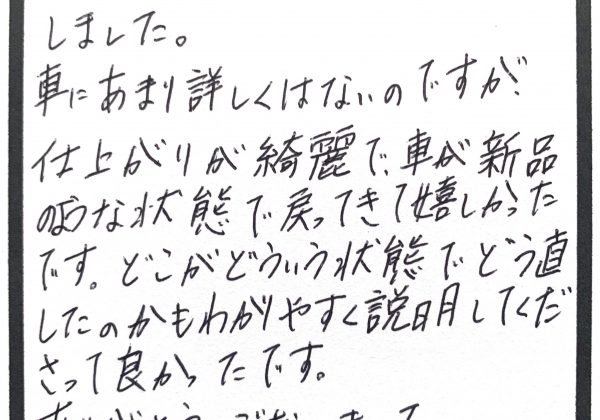 しました。
車にあまり詳しくはないのですが、
仕上がりが綺麗で、車が新品
のような状態で戻ってきて嬉しかった
です。どこがどういう状態でどう直
したのかもわかりやすく説明してくだ
さって良かったです。